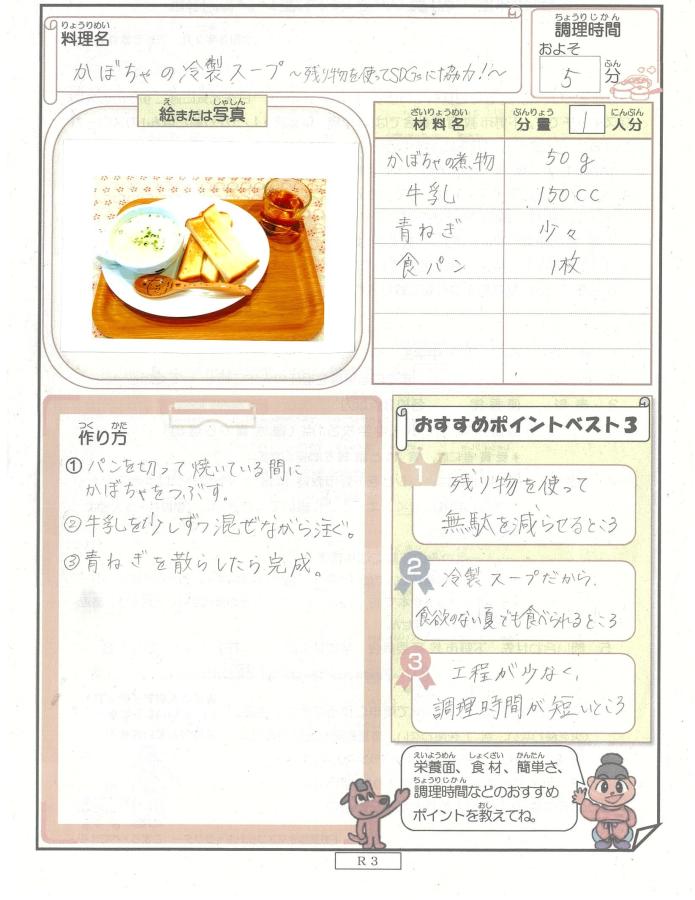 りょうりめい
料理名
かぼちゃの冷製スープ〜残り物を使ってSDGsに協力!〜
ちょうりじかん
調理時間
およそ
5 分
ぷん
え しゃしん
絵または写真
ざいりょうめい
材料名
ぶんりょう にんぶん
分量 1 人分
かぼちゃの煮物 50g
牛乳 150cc
青ねぎ 少々
食パン 1枚
つく かた
作り方
① パンを切って焼いている間に
かぼちゃをつぶす。
② 牛乳を少しずつ混ぜながら注ぐ。
③ 青ねぎを散らしたら完成。
おすすめポイントベスト3
1
残り物を使って
無駄を減らせるところ
2
冷製スープだから、
食欲のない夏でも食べられるところ
3
工程が少なく、
調理時間が短いところ
えいようめん しょくざい かんたん
栄養面、食材、簡単さ、
ちょうりじかん
調理時間などのおすすめ
おし
ポイントを教えてね。
R3